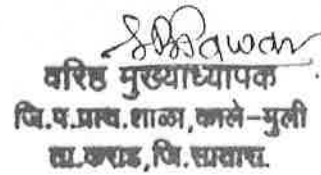 वरिष्ठ मुख्याध्यापक
जि.प.प्राथ.शाळा,काले-मुली
ता.कराड,जि.सातारा.